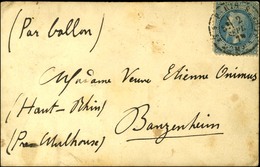 (Par ballon)
Madame Veuve Etienne Onimus
(Haut-Rhin)
(Près Mulhouse) Banzenheim